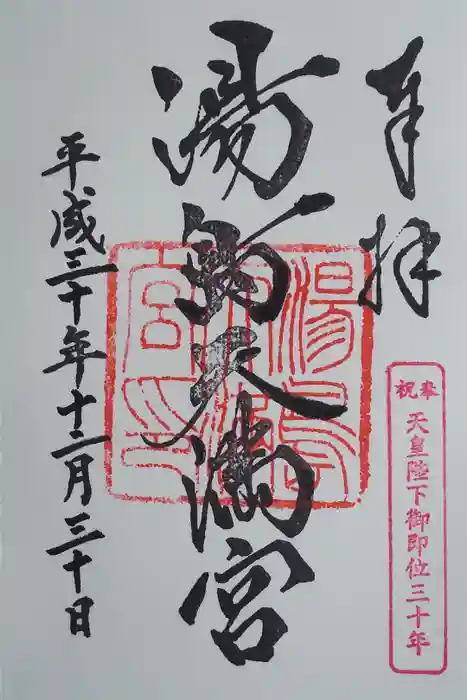 奉拝
奉祝 天皇陛下御即位三十年
湯島天満宮
平成三十年十二月三十日